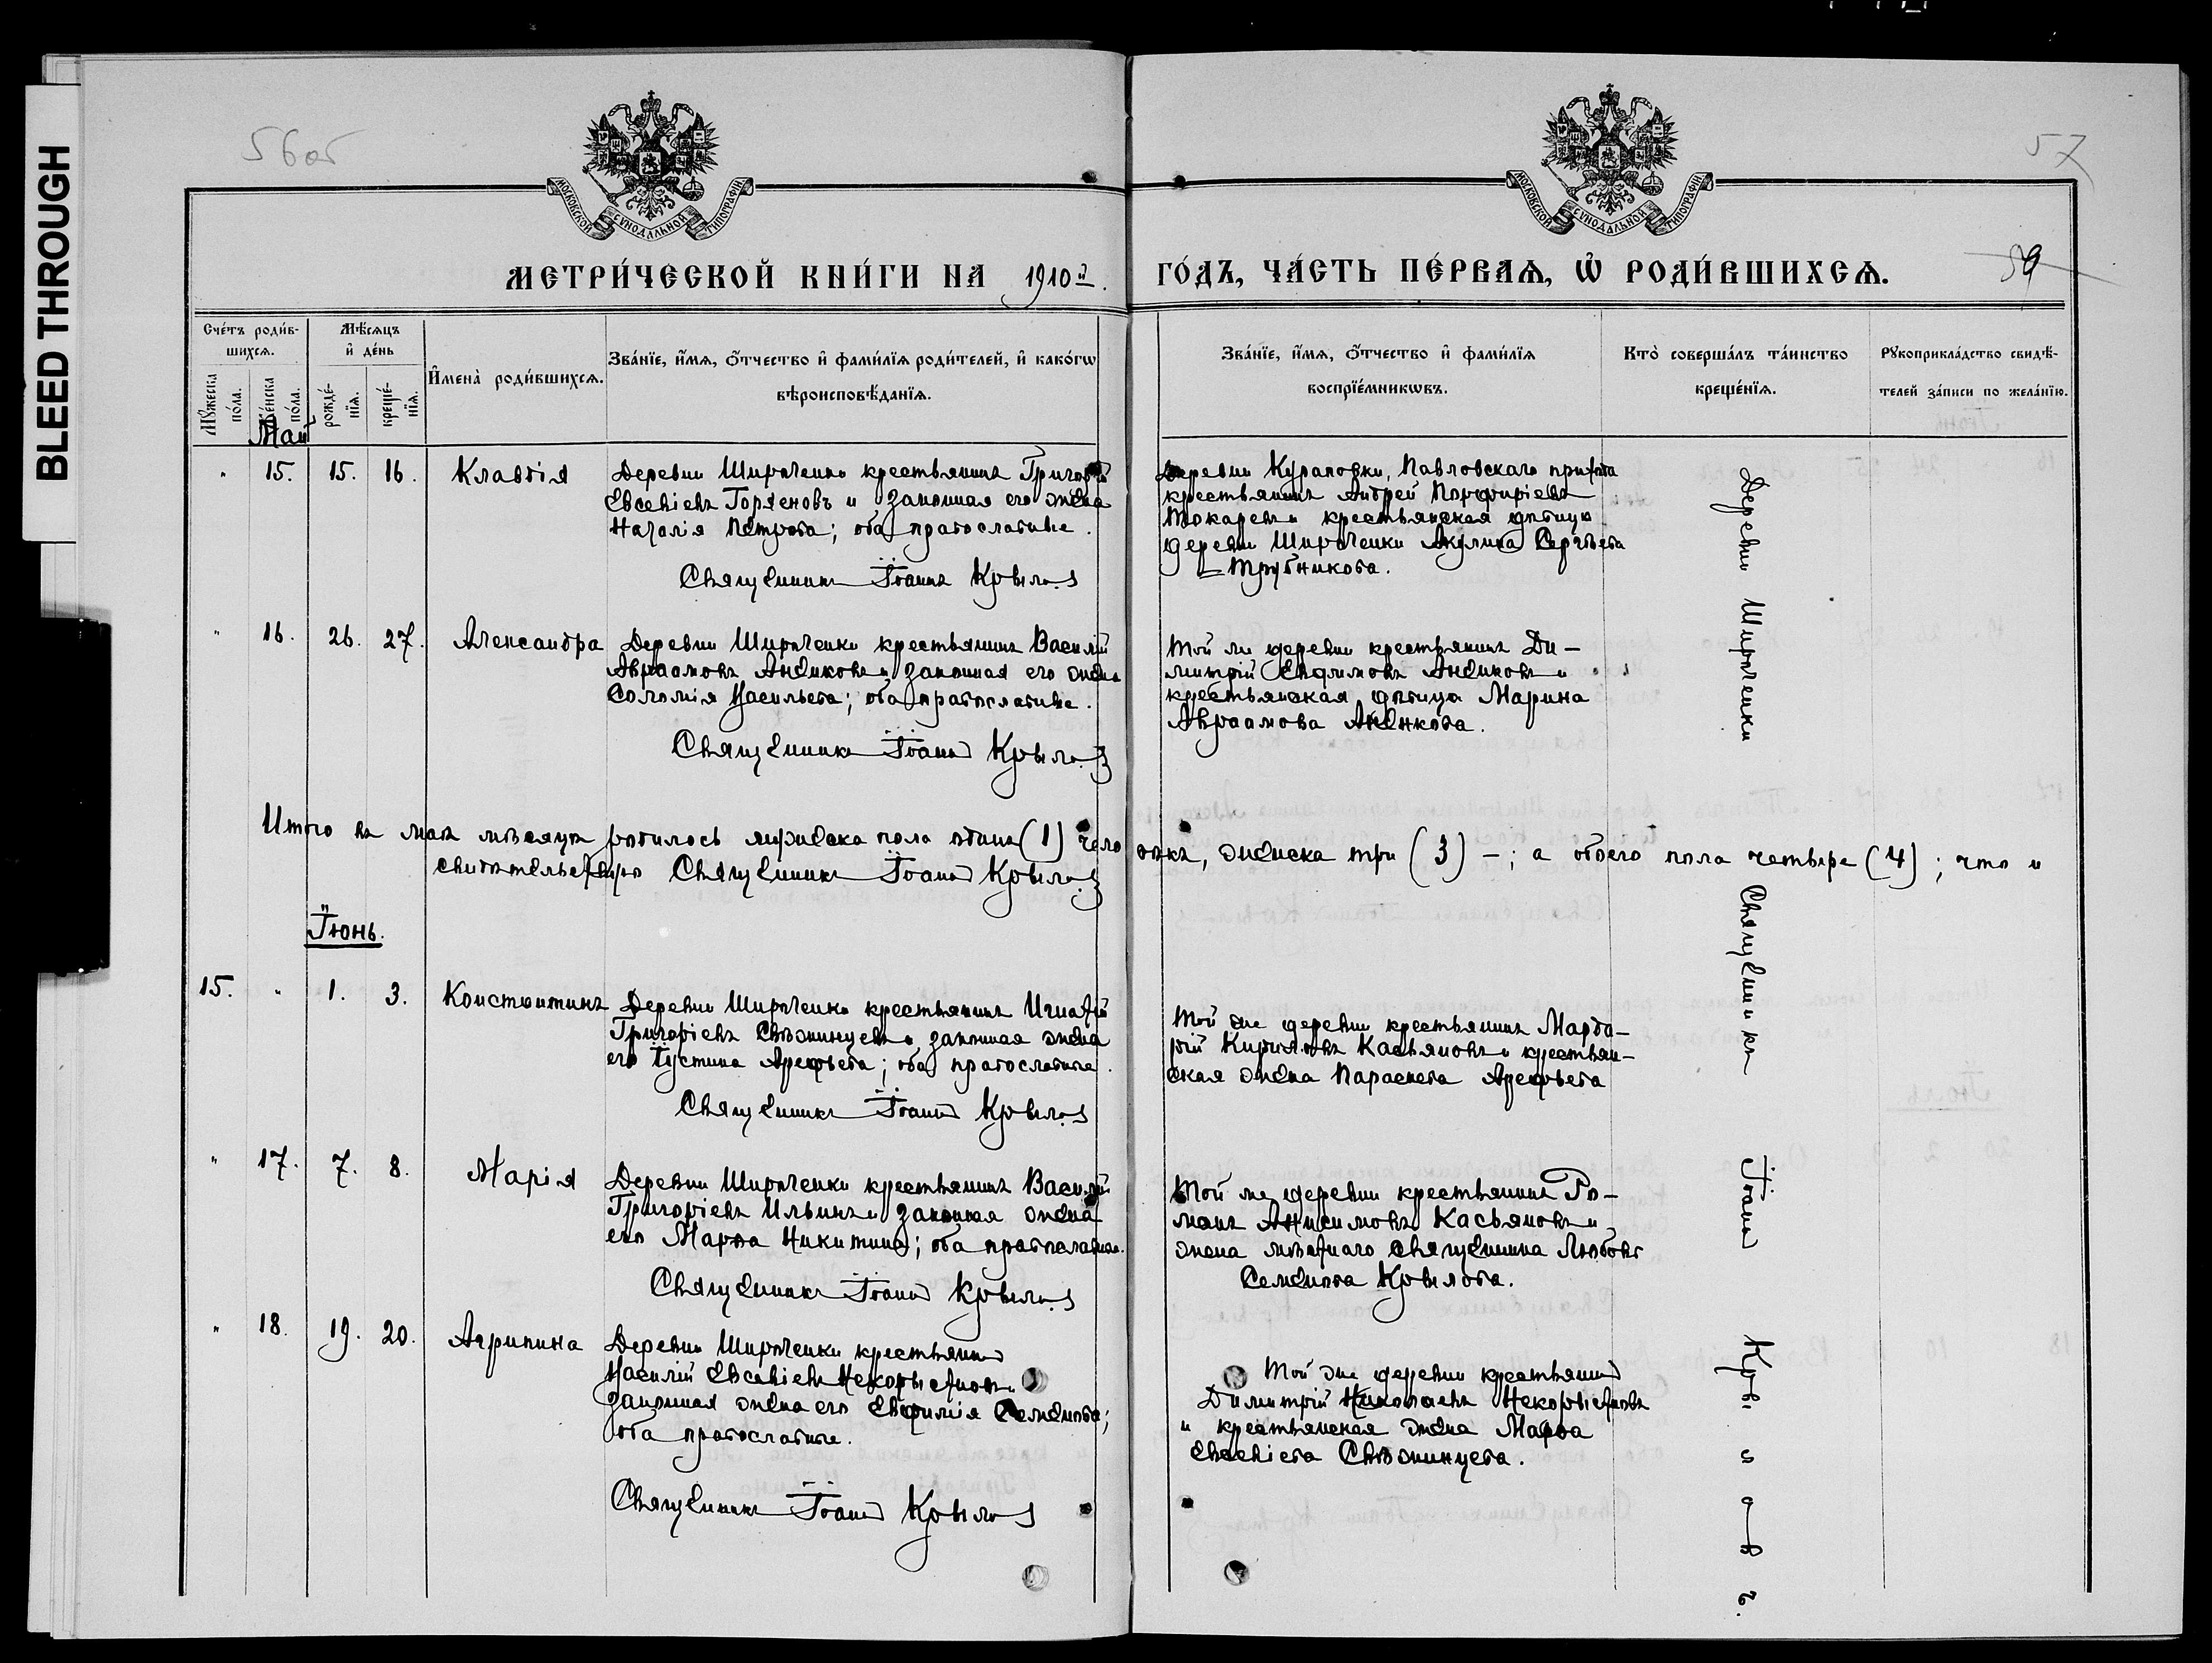 BLEED THROUGH
56об
57
59
МОСКОВСКОЙ СѴНОДАЛЬНОЙ ТИПОГРАФІИ
МОСКОВСКОЙ СѴНОДАЛЬНОЙ ТИПОГРАФІИ
МЕТРИ́ЧЕСКОЙ КНИ́ГИ НА 1910й.
ГО́ДЪ, ЧА́СТЬ ПЕ́РВАѦ, Ѡ҆ РОДИ́ВШИХСѦ.
Сче́тъ роди́в-
шихсѧ.
Мѣ́сѧцъ
и҆ де́нь
И҆мена̀ роди́вшихсѧ.
Зва́нїе, и҆́мѧ, ѻ҆́тчество и҆ фами́лїѧ роди́телей, и҆ како́гѡ
вѣроисповѣ́данїѧ.
Мꙋ́жеска
по́ла.
Же́нска
по́ла.
рожде́-
нїѧ.
креще́-
нїѧ.
Зва́нїе, и҆́мѧ, ѻ҆́тчество и҆ фами́лїѧ
воспрїе́мникѡвъ.
Кто̀ соверша́лъ та́инство
креще́нїѧ.
Рꙋкоприкла́дство свидѣ́-
телей за́писи по жела́нїю.
Май
" 15. 15. 16. Клавдія
Деревни Широченки крестьянинъ Григорій
Евсевіевъ Горяеновъ и законная его жена
Наталія Петрова; оба православные.
Священникъ Іоаннъ Крылов
Деревни Кураповки, Павловскаго прихода
крестьянинъ Андрей Порфиріевъ
Токаревъ и крестьянская дѣвица
деревни Широченки Акулина Сергѣева
Трубникова.
" 16. 26. 27. Александра
Деревни Широченки крестьянинъ Василій
Авраамовъ Аненковъ и законная его жена
Соломія Васильева; оба православные.
Священникъ Іоаннъ Крылов
Той же деревни крестьянинъ Ди-
митрій Евфимовъ Аненковъ и
крестьянская дѣвица Марина
Авраамова Аненкова.
Итого въ маѣ мѣсяцѣ родилось мужеска пола одинъ (1) человѣкъ, женска три (3) –; а обоего пола четыре (4); что и
свидѣтельствую Священникъ Іоаннъ Крылов
Іюнь.
15. " 1. 3. Константинъ
Деревни Широченки крестьянинъ Игнатій
Григоріевъ Свѣжинцевъ и законная жена
его Іустина Арефьева; оба православные.
Священникъ Іоаннъ Крылов
Той же деревни крестьянинъ Марда-
рій Кириловъ Касьяновъ и крестьян-
ская жена Параскева Арефьева
" 17. 7. 8. Марія
Деревни Широченки крестьянинъ Василій
Григоріевъ Ильинъ и законная жена
его Марѳа Никитина; оба православные.
Священникъ Іоаннъ Крылов
Той же деревни крестьянинъ Ро-
манъ Анисимовъ Касьяновъ и
жена мѣстнаго священника Любовь
Семенова Крылова.
" 18. 19. 20. Агрипина
Деревни Широченки крестьянинъ
Василій Евсевіевъ Некорыстновъ и
законная жена его Евфимія Семенова;
оба православные.
Священникъ Іоаннъ Крылов
Той же деревни крестьянинъ
Димитрій Николаевъ Некорыстновъ
и крестьянская жена Марѳа
Евсевіева Свѣжинцева.
Деревни Широченки Священникъ Іоаннъ Крыловъ.